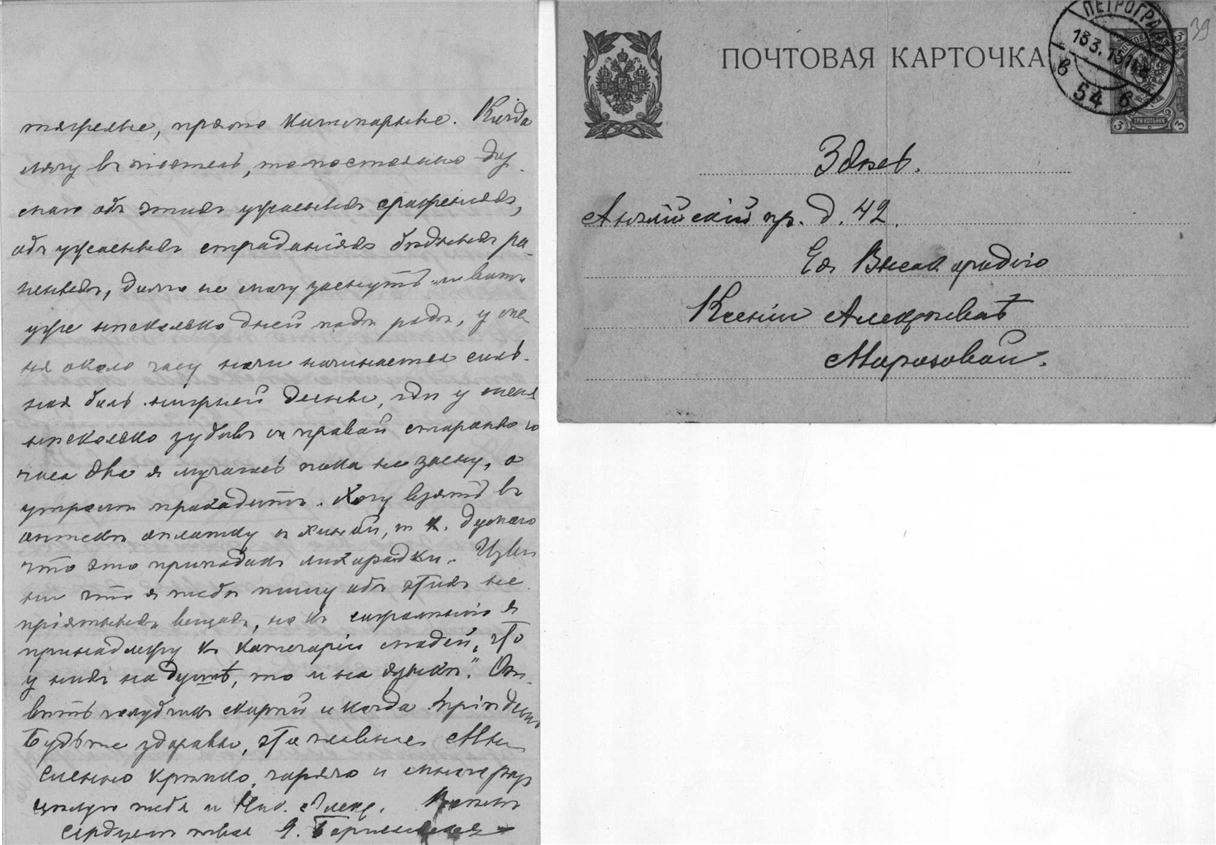 тяжелые, прямо кошмарные. Когда
лягу в постель, то постоянно ду-
маю объ этихъ ужасныхъ сраженіяхъ,
объ ужасныхъ страданіяхъ бѣдныхъ ра-
неныхъ, долго не могу заснуть и вотъ
уже нѣсколько дней подъ рядъ, у ме-
ня около часу ночи начинается силь-
ная боль нижней десны, гдѣ у меня
нѣсколько зубовъ съ правой стороны и
часа два я мучаюсь пока не засну, а
утромъ проходитъ. Хочу взять въ
аптекѣ облатку съ хиной, т. к. думаю
что это припадокъ лихорадки. Изви-
ни что я тебѣ пишу объ этихъ не-
пріятныхъ вещахъ, но къ сожалѣнію я
принадлежу къ категоріи людей, "что
у нихъ на душѣ, то и на языкѣ". От-
вѣть голубчикъ скорѣй и когда пріѣдешь
Будьте здоровы, это главное. Мы-
сленно крѣпко, горячо и много разъ
цѣлую тебя и Ник. Алекс. Всѣмъ
сердцемъ твоя
ПОЧТОВАЯ КАРТОЧКА
39
ПЕТРОГРАДЪ
54
ТРИ КОПѢЙКИ
Здѣсь.
Англійскій пр. д. 42.
Ея Высокородію
Ксеніи Алексѣевнѣ
Морозовой.